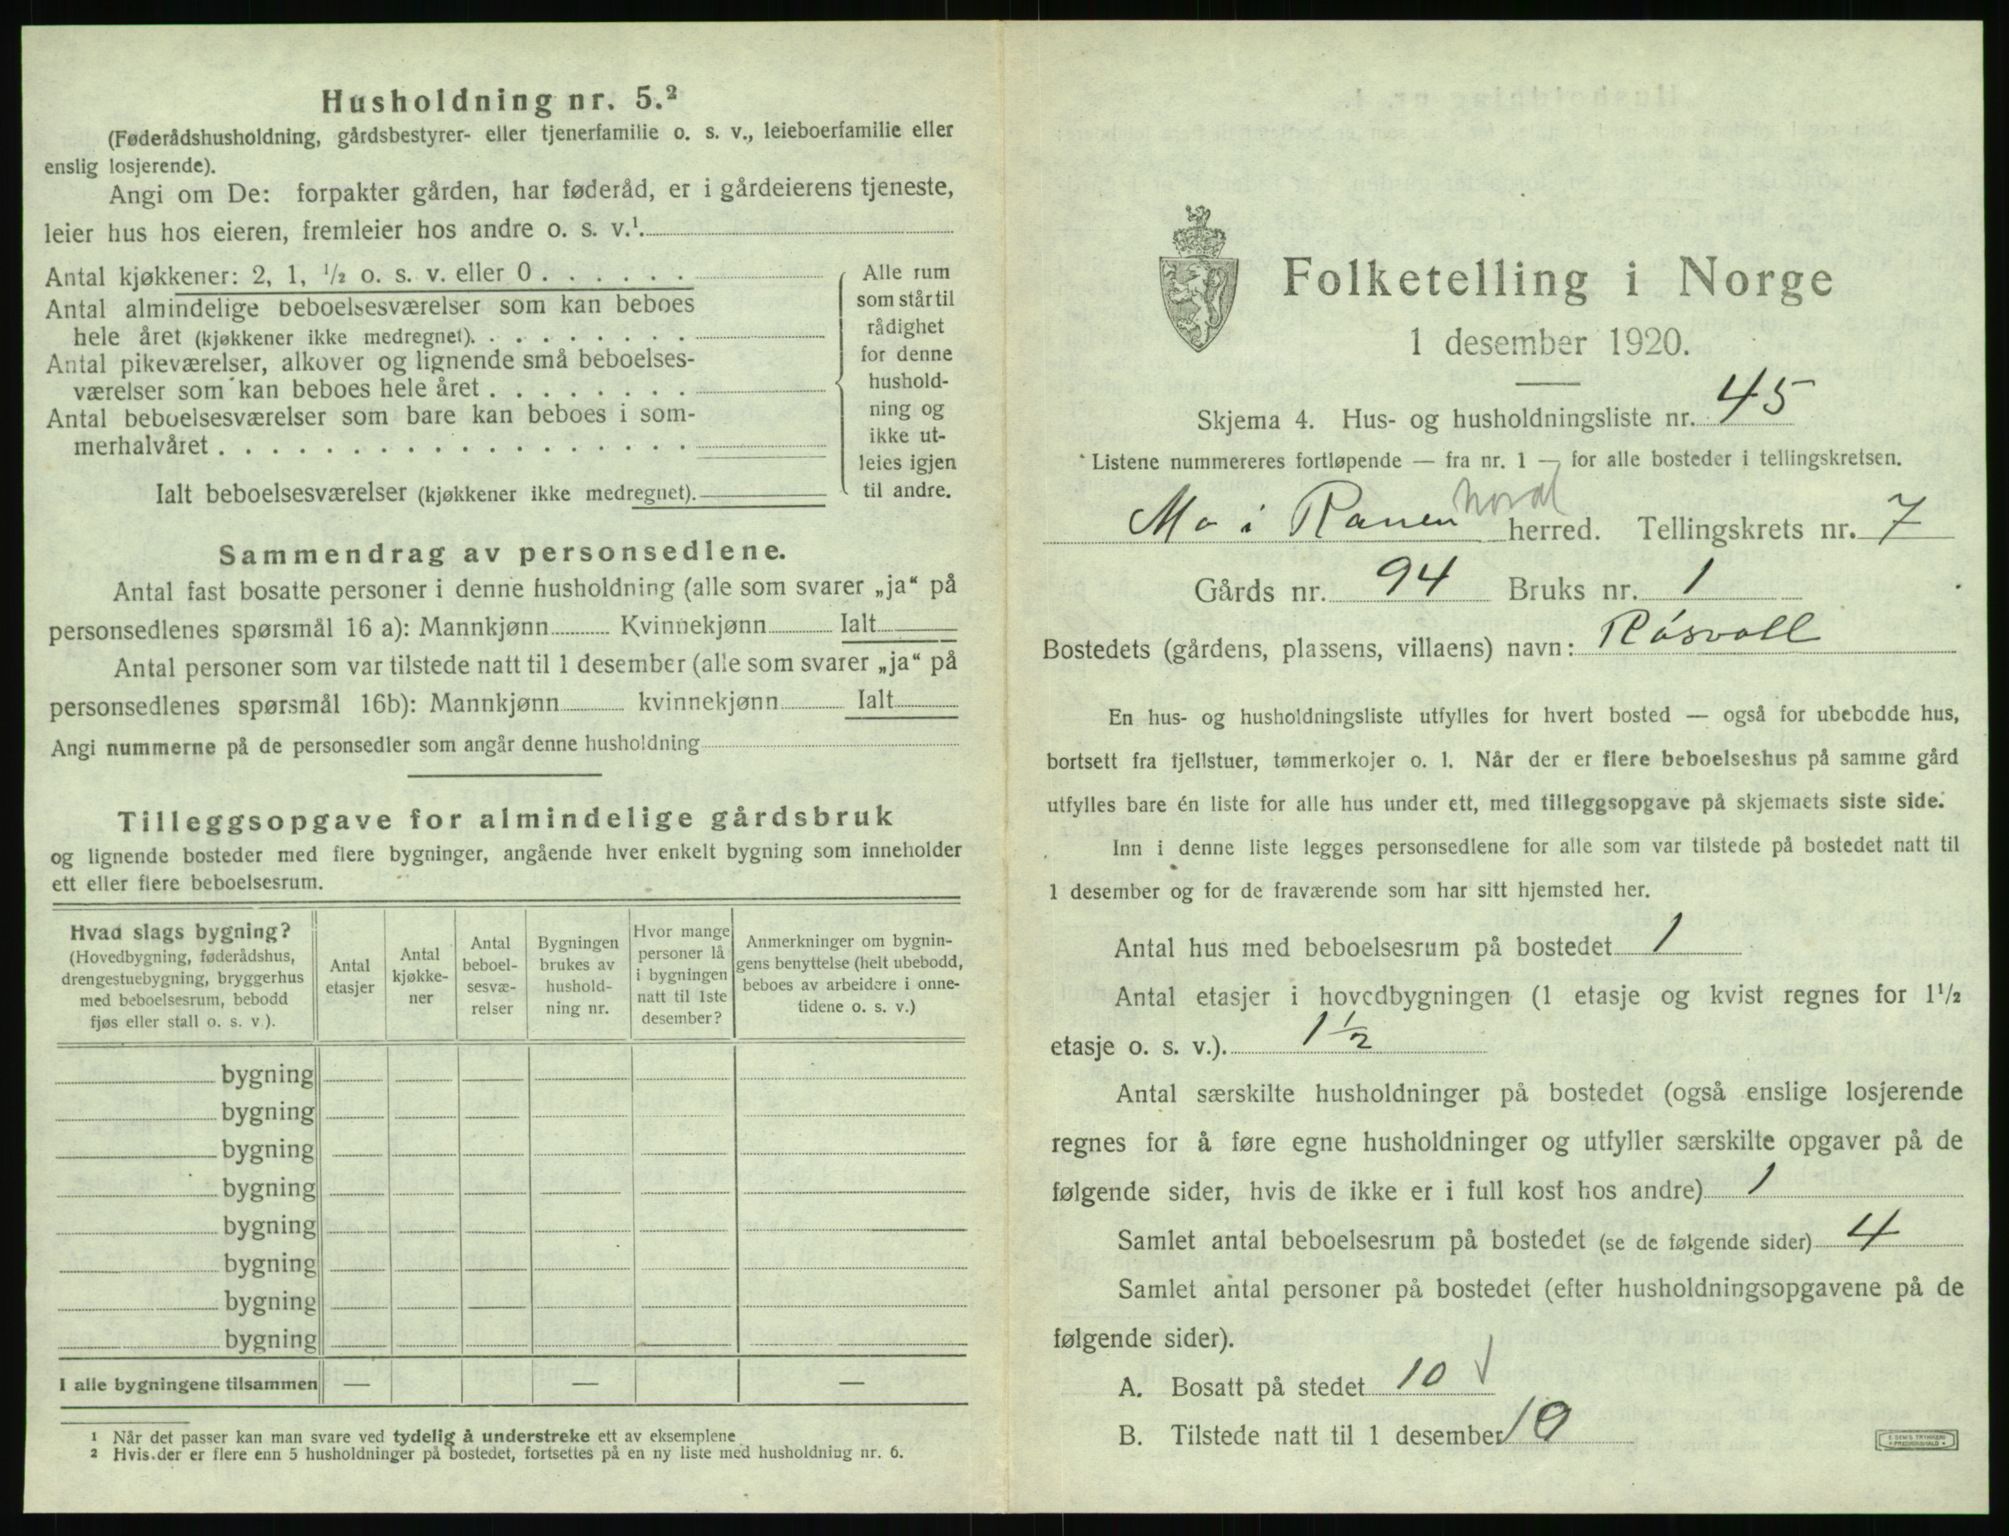 Husholdning nr. 5.²
(Føderådshusholdning, gårdsbestyrer- eller tjenerfamilie o. s. v., leieboerfamilie eller
enslig losjerende).
Angi om De: forpakter gården, har føderåd, er i gårdeierens tjeneste,
leier hus hos eieren, fremleier hos andre o. s. v.¹.
Antal kjøkkener: 2, 1, ½ o. s. v. eller 0 . . . . . .
Antal almindelige beboelsesværelser som kan beboes
hele året (kjøkkener ikke medregnet). . . . . . . . .
Antal pikeværelser, alkover og lignende små beboelses-
værelser som kan beboes hele året . . . . . . . .
Antal beboelsesværelser som bare kan beboes i som-
merhalvåret . . . . . . . . . . . . . . . . . .
Ialt beboelsesværelser (kjøkkener ikke medregnet).
Alle rum
som står til
rådighet
for denne
hushold-
ning og
ikke ut-
leies igjen
til andre.
Sammendrag av personsedlene.
Antal fast bosatte personer i denne husholdning (alle som svarer „ja“ på
personsedlenes spørsmål 16 a): Mannkjønn Kvinnekjønn Ialt
Antal personer som var tilstede natt til 1 desember (alle som svarer „ja“ på
personsedlenes spørsmål 16b): Mannkjønn kvinnekjønn Ialt
Angi nummerne på de personsedler som angår denne husholdning
Tilleggsopgave for almindelige gårdsbruk
og lignende bosteder med flere bygninger, angående hver enkelt bygning som inneholder
ett eller flere beboelsesrum.
Hvad slags bygning?
(Hovedbygning, føderådshus,
drengestuebygning, bryggerhus
med beboelsesrum, bebodd
fjøs eller stall o. s. v.).
Antal
etasjer
Antal
kjøkke-
ner
Antal
beboel-
sesvæ-
relser
Bygningen
brukes av
hushold-
ning nr.
Hvor mange
personer lå
i bygningen
natt til 1ste
desember?
Anmerkninger om bygnin-
gens benyttelse (helt ubebodd,
beboes av arbeidere i onne-
tidene o. s. v.)
bygning
bygning
bygning
bygning
bygning
bygning
bygning
bygning
I alle bygningene tilsammen — — —
¹ Når det passer kan man svare ved tydelig å understreke ett av eksemplene
² Hvis der er flere enn 5 husholdninger på bostedet, fortsettes på en ny liste med husholdning nr. 6.
Folketelling i Norge
1 desember 1920.
Skjema 4. Hus- og husholdningsliste nr. 45
Listene nummereres fortløpende — fra nr. 1 — for alle bosteder i tellingskretsen.
Nord
Mo i Ranen herred. Tellingskrets nr. 7
Gårds nr. 94 Bruks nr. 1
Bostedets (gårdens, plassens, villaens) navn: Røsvoll
En hus- og husholdningsliste utfylles for hvert bosted — også for ubebodde hus,
bortsett fra fjellstuer, tømmerkojer o. l. Når der er flere beboelseshus på samme gård
utfylles bare én liste for alle hus under ett, med tilleggsopgave på skjemaets siste side.
Inn i denne liste legges personsedlene for alle som var tilstede på bostedet natt til
1 desember og for de fraværende som har sitt hjemsted her.
Antal hus med beboelsesrum på bostedet 1
Antal etasjer i hovedbygningen (1 etasje og kvist regnes for 1½
etasje o. s. v.). 1½
Antal særskilte husholdninger på bostedet (også enslige losjerende
regnes for å føre egne husholdninger og utfyller særskilte opgaver på de
følgende sider, hvis de ikke er i full kost hos andre) 1
Samlet antal beboelsesrum på bostedet (se de følgende sider) 4
Samlet antal personer på bostedet (efter husholdningsopgavene på de
følgende sider).
A. Bosatt på stedet 10
B. Tilstede natt til 1 desember 10